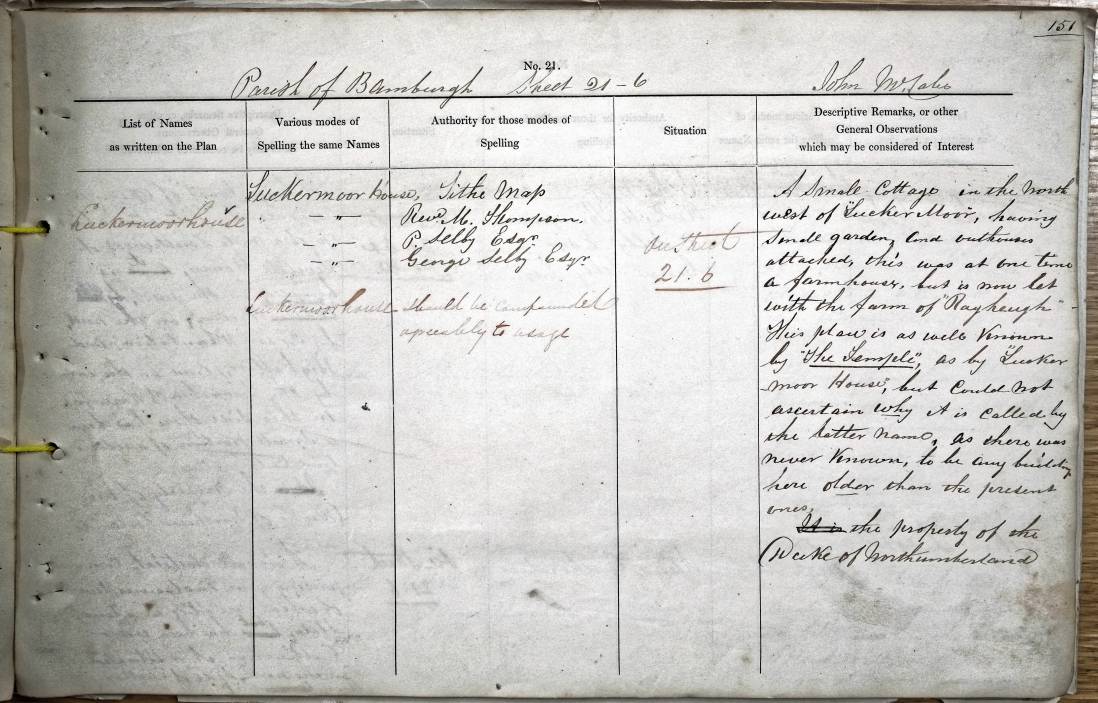 151
No. 21.
Parish of Bamburgh Sheet 21-6 John McCabe
List of Names
as written on the Plan
Various modes of
Spelling the same Names
Authority for those modes of
Spelling
Situation
Descriptive Remarks, or other
General Observations
which may be considered of Interest
Luckermoorhouse
Luckermoor house, Tithe Map
— " — Revd. M. Thompson.
— " — P. Selby Esqr.
— " — George Selby Esqr.
Luckermoorhouse should be compounded
agreeably to usage
On Sheet
21.6
A Small Cottage in the North
west of "Lucker Moor", having
Small garden, and outhouses
attached, this was at one time
a farmhouse, but is now let
with the farm of "Rayheugh"
This place is as well Known
by "The Temple", as by "Lucker
moor House", but Could Not
ascertain why it is Called by
the latter Name, as there was
never Known, to be any building
here older than the present
ones.
It is the property of the
Duke of Northumberland